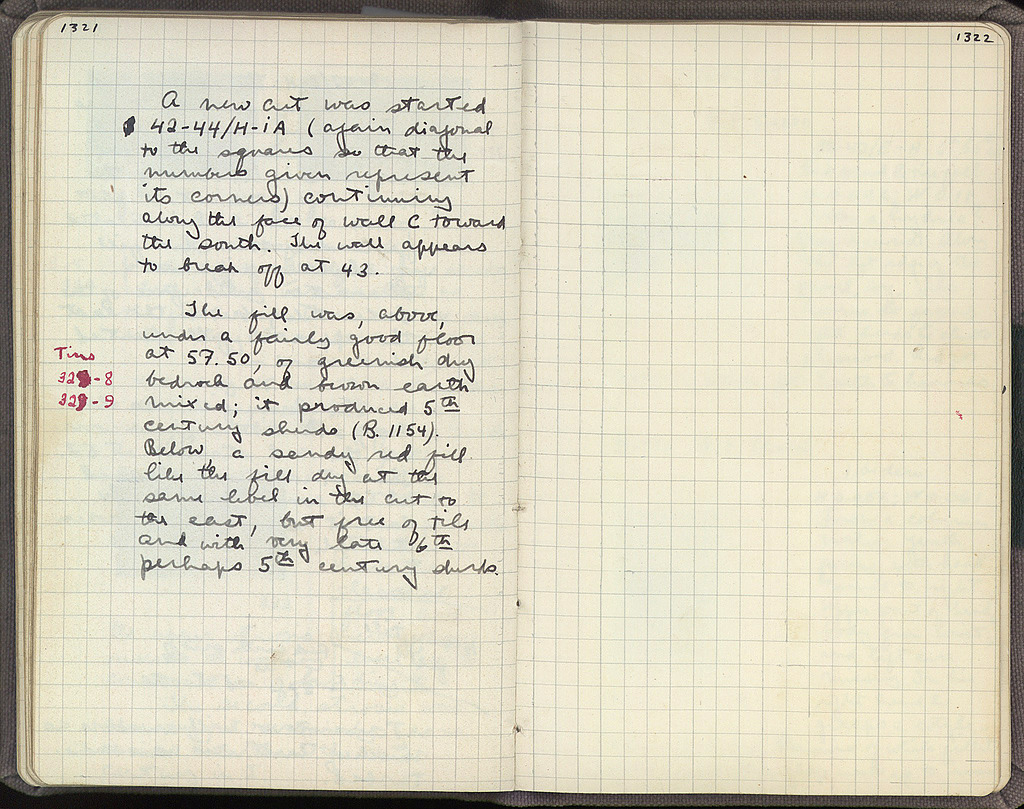 1321
A new cut was started
42-44/H-IA (again diagonal
to the squares so that the
numbers given represent
its corners) continuing
along the face of wall C toward
the south. The wall appears
to break off at 43.
The fill was, above,
under a fairly good floor
at 57.50, of greenish dry
bedrock and brown earth
mixed; it produced 5th
century sherds (B. 1154).
Below, a sandy red fill
like the fill dug at the
same level in the cut to
the east, but free of tile
and with very late 6th
perhaps 5th century sherds.
Tins
-8
-9
1322